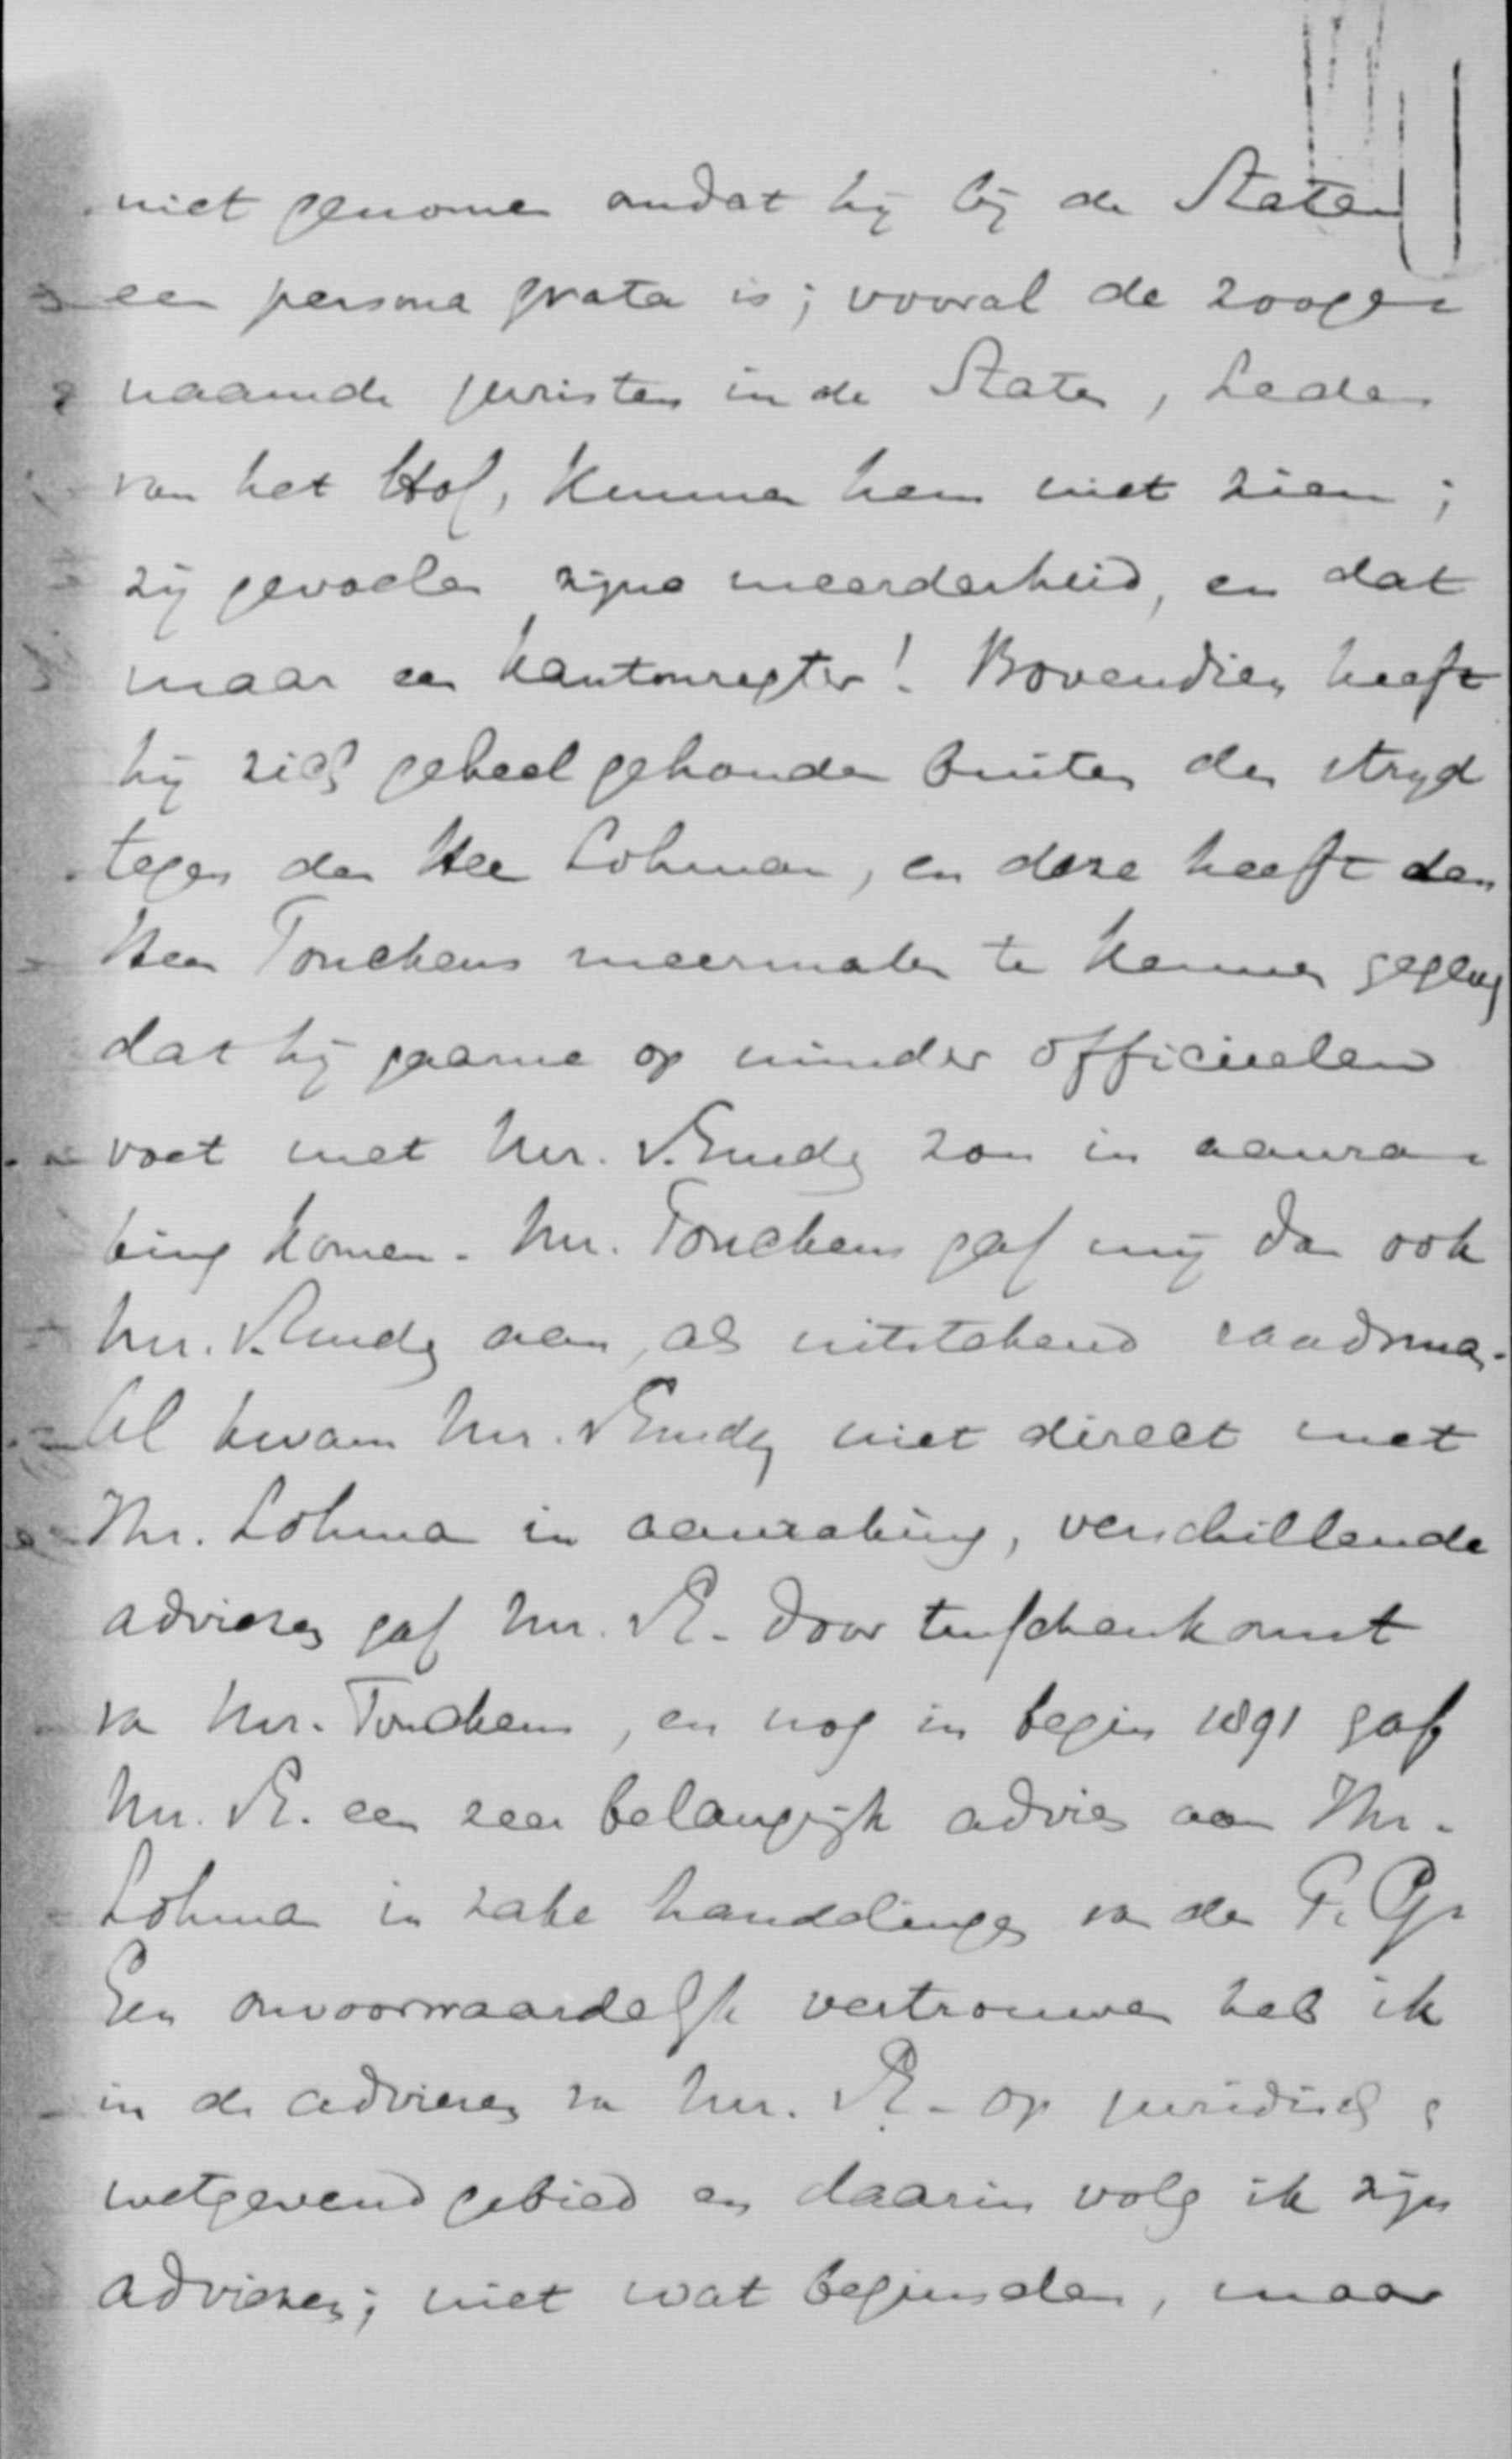 niet genomen omdat hij bij de Staten
een persona grata is; vooral de zooge
naamde juristen in de Staten, Leden
van het Hof, kunnen hem niet zien;
zij gevoelen zijne meerderheid, en dat
maar een kantonregter! Bovendien heeft
hij zich geheel gehouden buiten den strijd
tegen den Heer Lohman, en deze heeft den
Heer Tonckens meermalen te kennen gegeven
dat hij gaarne op minder officieelen
voet met Mr. v. Emde zou in aanra
king komen. Mr. Tonckens gaf mij dan ook
Mr. v. Emde aan, als uitstekend raadsman.
Al kwam Mr. v Emde niet direct met
Mr. Lohman in aanraking, verschillende
adviezen gaf Mr. v E. door tusschenkomst
van Mr. Tonckens, en nog in begin 1891 gaf
Mr. v E. een zeer belangrijk advies aan Mr.
Lohman in zake handelingen van den P. G.
Een onvoorwaardelijk vertrouwen heb ik
in de adviezen van Mr. v E. op juridisch &
wetgevend gebied en daarin volg ik zijn
adviezen; niet wat beginselen, maar